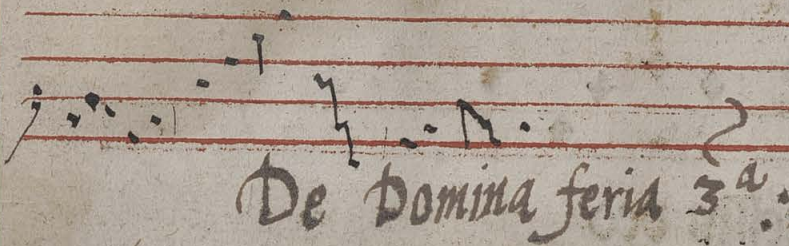 De Domina feria 3ª.